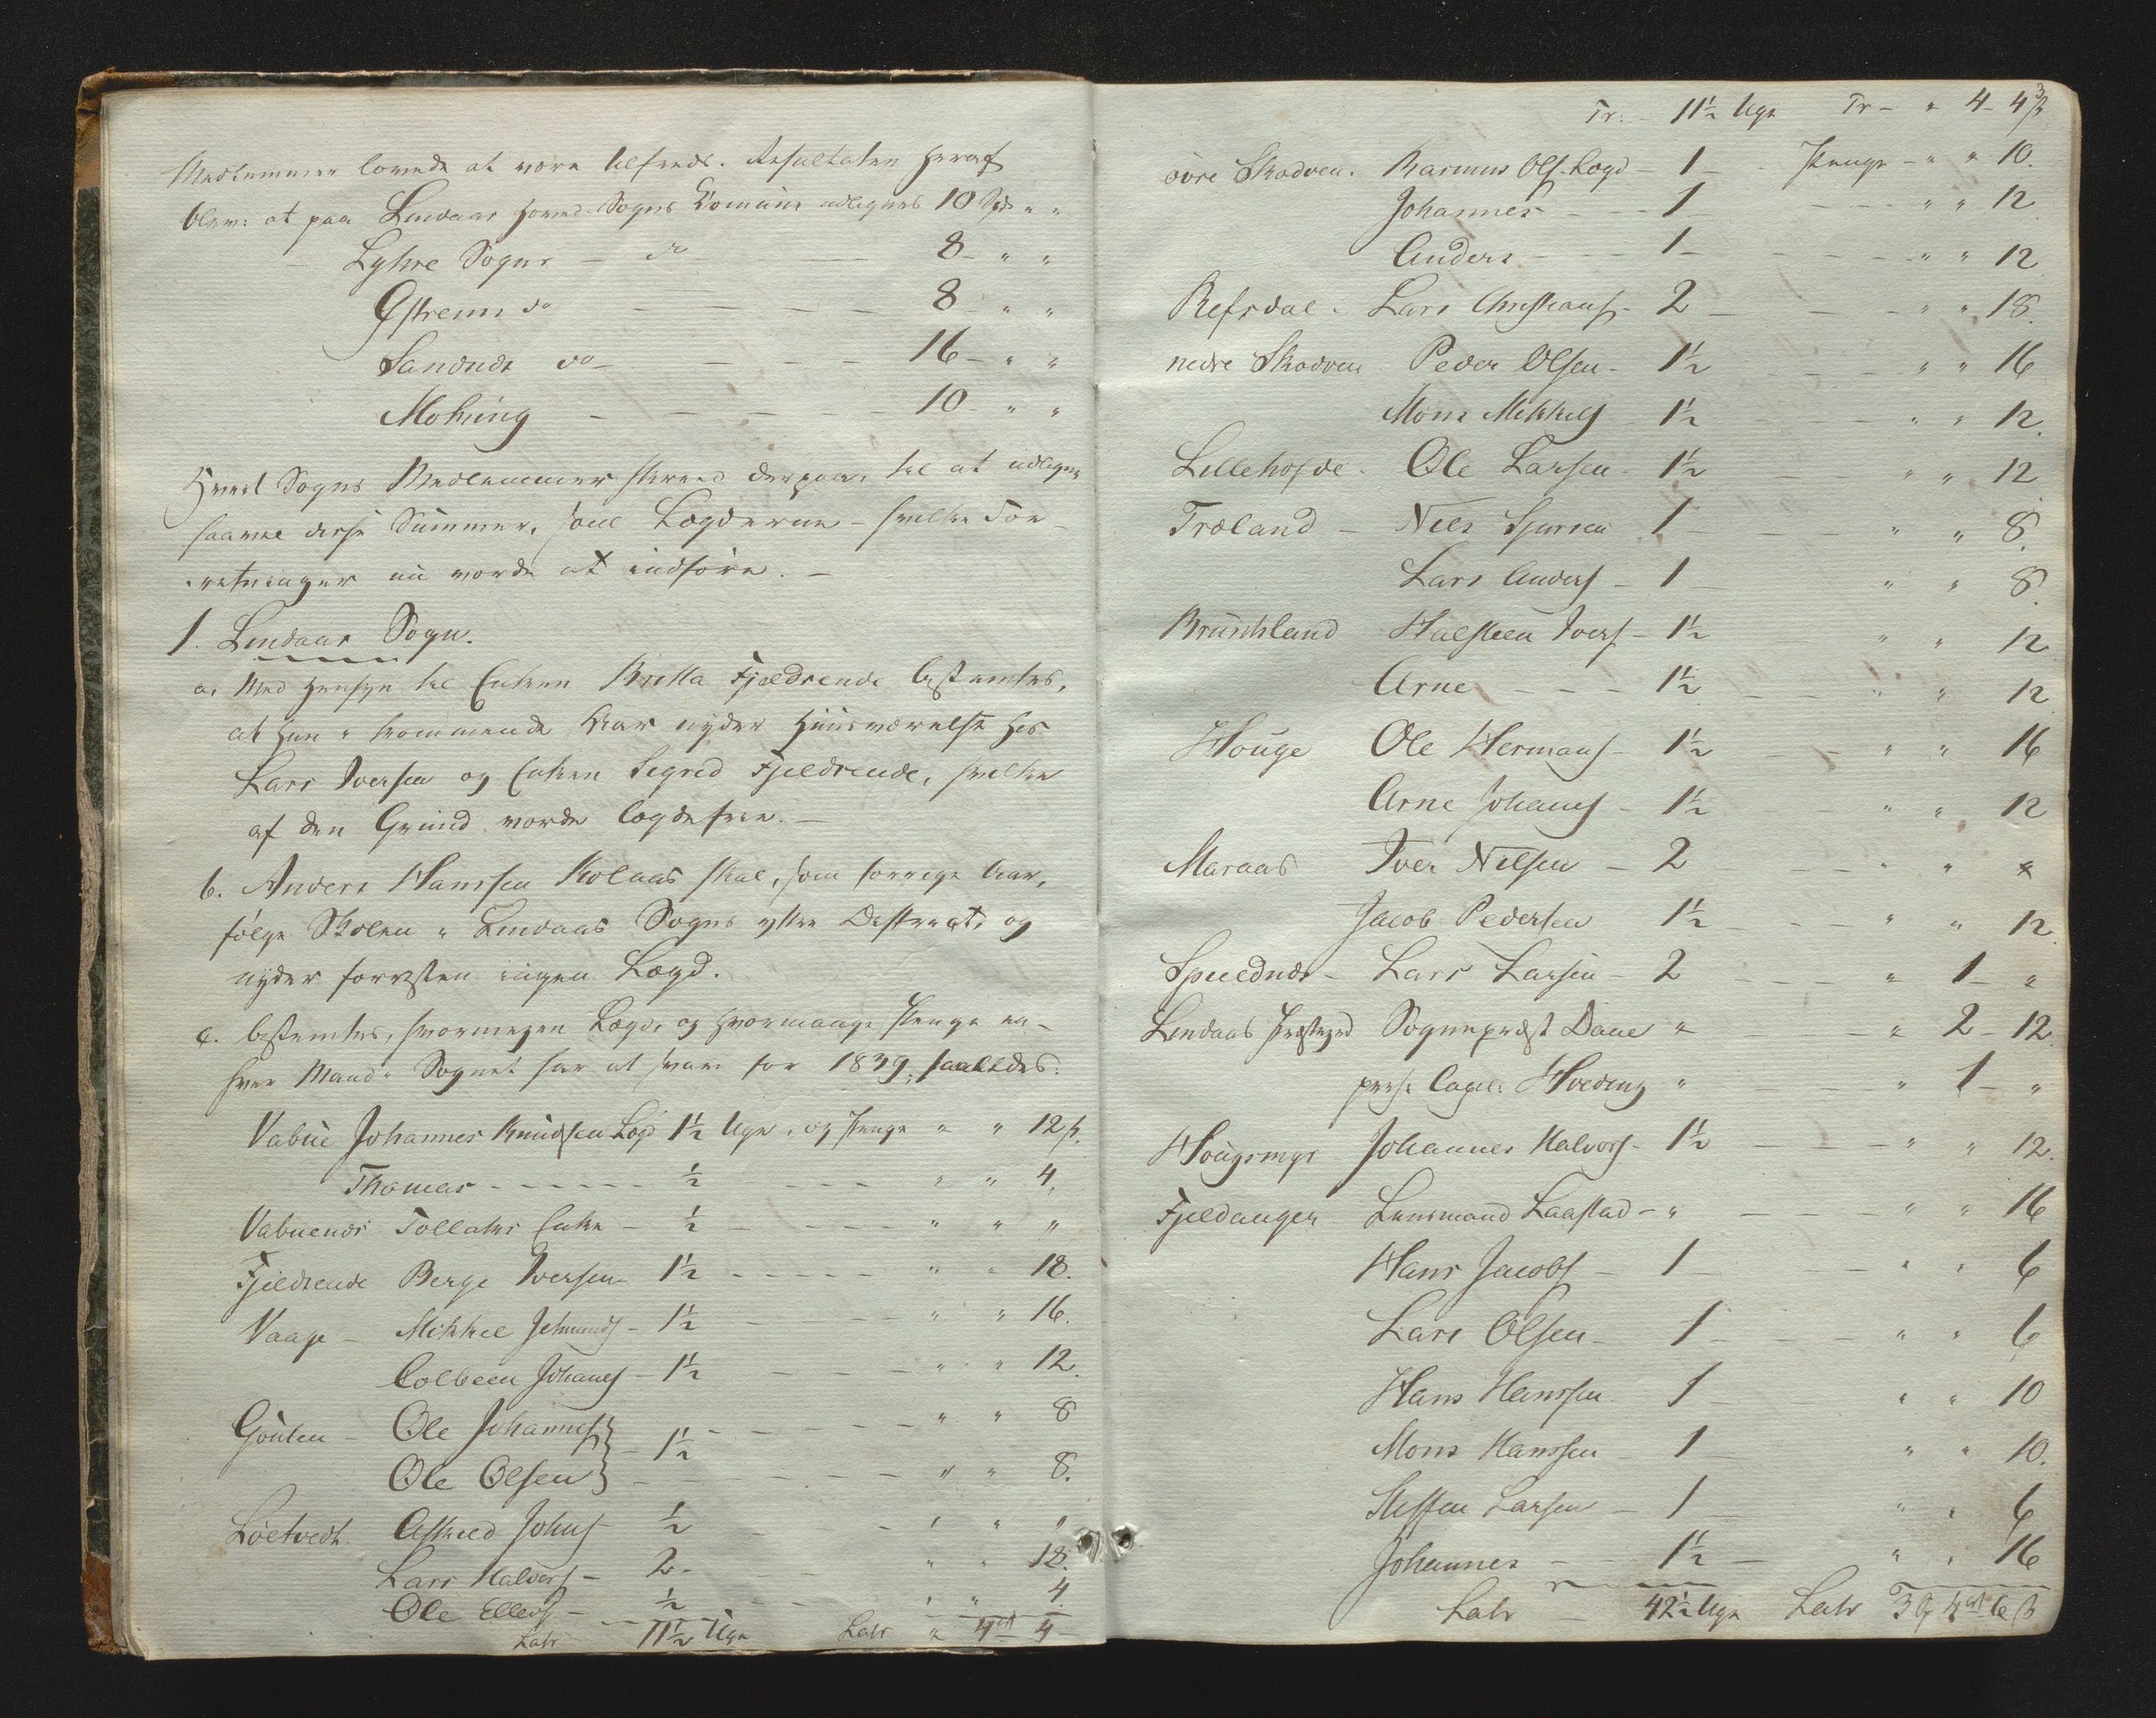 Medlemmer lovede at være tilfreds. Resultaten heraf
blev: at paa Lindaas Hoved-Sogns Comune udlignes 10 Spd " "
Lyhre Sogn - do - 8 - " "
Østrem do - - - 8 - " "
Sandnæs do - - - 16 - " "
Mohring - - - - 10 - " "
Hvert Sogns Medlemmer skreed derpaa, til at udligne
saavel disse Summer, som Lægderne - hvilke For-
retninger nu vorde at indføre. -
1. Lindaas Sogn.
a, Med Hensyn til Enken Britta Fjeldsende bestemtes,
at hun i kommende Aar nyder Huusværelse hos
Lars Iversen og Enken Sigrid Fjeldsende, hvilke
af den Grund vorde lægdefrie. -
b. Anders Hanssen Kolaas skal, som forrige Aar,
følge Skolen i Lindaas Sogns ytre Distrikt, og
nyder forresten ingen Lægd.
c. bestemtes, hvormegen Lægd, og hvormange Penge en-
hver Mand i Sognet har at svare for 1839, saaledes:
Vabue Johannes Knudsen Lægd 1½ Uge, og Penge " " 12 ß.
Thomas - - - - - ½ - - - " " 4,
Vabuenæs Tollaks Enke - ½ - - - - " " "
Fjeldsende Berge Iversen 1½ - - - - - " " 18.
Vaage - Mikkel Jehmunds - 1½ - - - " " 16.
Colbeen Johans - 1½ - - - - " " 12.
Goulen - Ole Johannes } - - - - - " " 8
Ole Olsen } - 1½ - - - - " " 8.
Løetvedt. Askild Johns ½ - - " " "
Lars Halvors - 2 - - - " " 18.
Ole Ellevs - ½ - - " " 4.
Latr 11½ Uge Latr " 4 ort 4 -
Tr. - 11½ Uge Tr - " 4 - 4 ß
øvre Skodven. Rasmus Ols. Lægd - 1 - Penge - " " 10.
Johannes - - - 1 - - - - " " 12
Anders - - - 1 - - - - - " " 12
Refsdal - Lars Christians - 2 - - - " " 18.
nedre Skodven Peder Olsen - 1½ - - - " " 16
Mons Mikkels - 1½ - - - " " 12.
Lillehofde - Ole Larsen - 1½ - - - " " 12
Træland - Nils Sjursen 1 - - - " " 8.
Lars Anders - 1 - " " 8.
Brunkland Halsteen Ivers - 1½ " " 12
Arne - - - 1½ - - " " 12.
Houge Ole Hermans - 1½ - - " " 16
Arne Johans - 1½ - - " " 12
Maraas Iver Nilsen - 2 - - " " "
Jacob Pedersen 1½ - - - " " 12.
Spueldnæs - Lars Larsen - 2 - - - " 1 - "
Lindaas Præstegrd Sognepræst Daae " - " 2 - 12.
pers. Capel. Hveding " - - " 1 - "
Hougsmyr Johannes Halvors - 1½ - - - " " 12.
Fjeldanger Lensmand Laastad - " - - - " " 16
Hans Jacobs - 1 - - - " " 6
Lars Olsen - 1 - - - " " 6
Hans Hanssen 1 - - " " 10
Mons Hanssen - 1 - " " 10.
Steffen Larsen - 1 - " " 6
Johannes - - 1½ - " " 16
Latr - 42½ Uge Latr 3 4 ort 6 ß